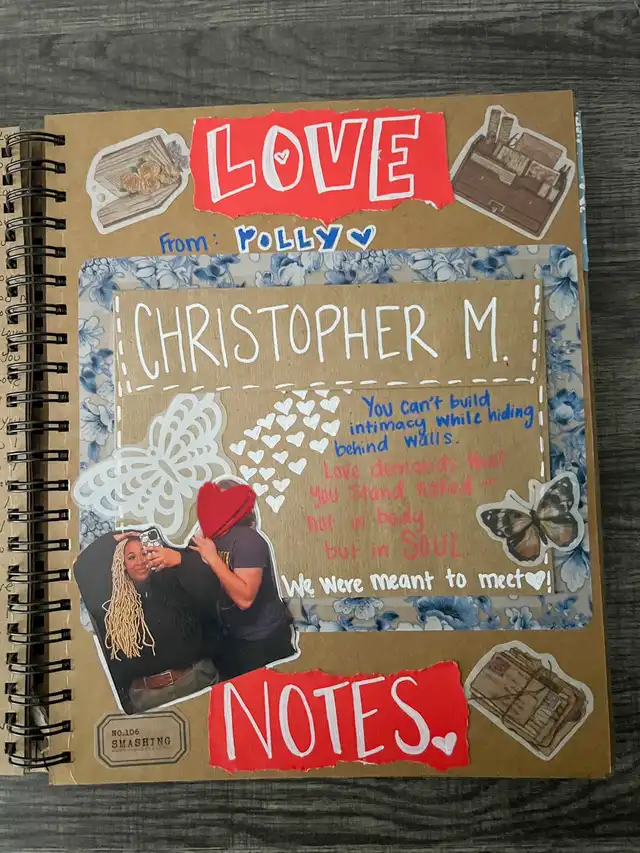 LOVE
From: POLLY
CHRISTOPHER M.
You can't build
intimacy while hiding
behind walls.
Love demands that
you stand naked –
not in body
but in SOUL.
We were meant to meet
NOTES.
NO.106
SMASHING